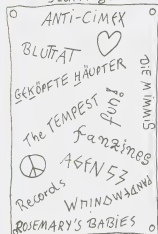 ANTi-CiMEX
BLUTTAT
GEKÖPFTE HÄUPTER
DiE MiMMiS
The TEMPEST
fun!
fanzines
AGEN 53
Records
PANDEMONIUM
ROSEMARY'S BABiES